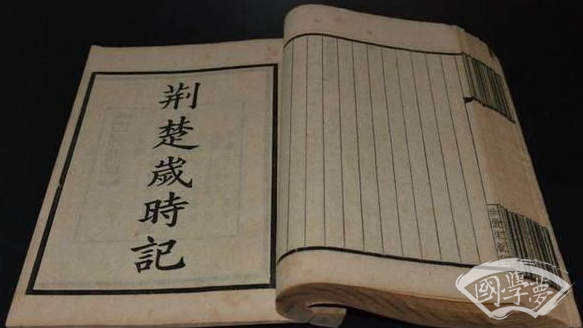 荆楚歲時記
國學夢